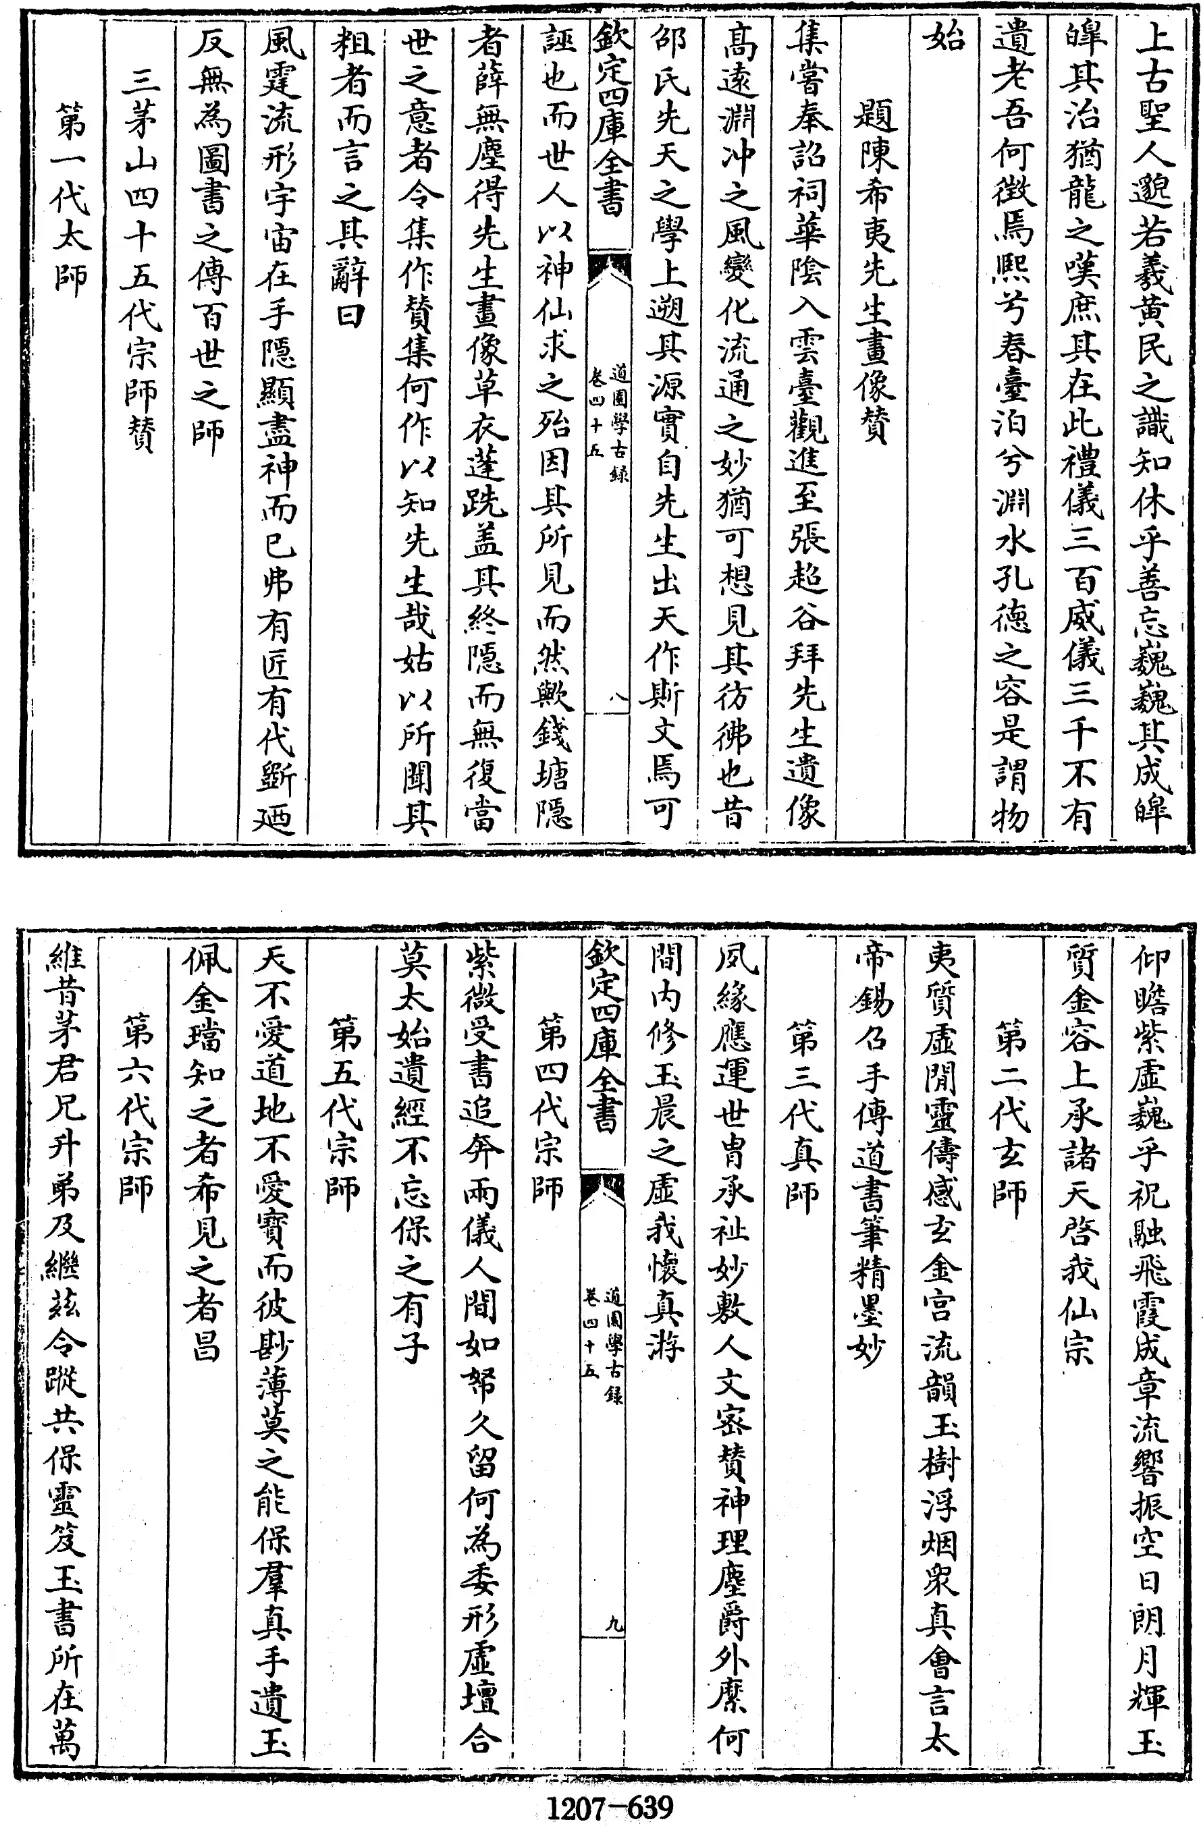 上古聖人邈若羲黄民之識知休乎善忘巍巍其成皡
皡其治猶龍之嘆庶其在此禮儀三百威儀三千不有
遺老吾何徵焉熙兮春臺泊兮淵水孔德之容是謂物
始
題陳希夷先生畫像贊
集嘗奉詔祠華陰入雲臺觀進至張超谷拜先生遺像
髙遠淵冲之風變化流通之妙猶可想見其彷彿也昔
邵氏先天之學上遡其源實自先生出天作斯文焉可
欽定四庫全書
道園學古録
卷四十五
八
誣也而世人以神仙求之殆因其所見而然歟錢塘隠
者薛無塵得先生畫像草衣蓬跣盖其終隠而無復當
世之意者令集作贊集何作以知先生哉姑以所聞其
粗者而言之其辭曰
風霆流形宇宙在手隠顯盡神而已弗有匠有代斵廼
反無為圖書之傳百世之師
三茅山四十五代宗師贊
第一代太師
仰瞻紫虛巍乎祝融飛霞成章流響振空日朗月輝玉
質金容上承諸天啓我仙宗
第二代玄師
夷質虛閒靈儔感玄金宫流韻玉樹浮烟衆真會言太
帝錫召手傳道書筆精墨妙
第三代真師
夙緣應運世胄承祉妙敷人文宻贊神理塵爵外縻何
間内修玉晨之虛我懷真游
欽定四庫全書
道園學古録
卷四十五
九
第四代宗師
紫微受書追奔兩儀人間如帑久留何為委形虛壇合
莫太始遺經不忘保之有子
第五代宗師
天不愛道地不愛寳而彼尠薄莫之能保羣真手遺玉
佩金璫知之者希見之者昌
第六代宗師
維昔茅君兄升弟及繼兹令蹤共保靈笈玉書所在萬
1207-639